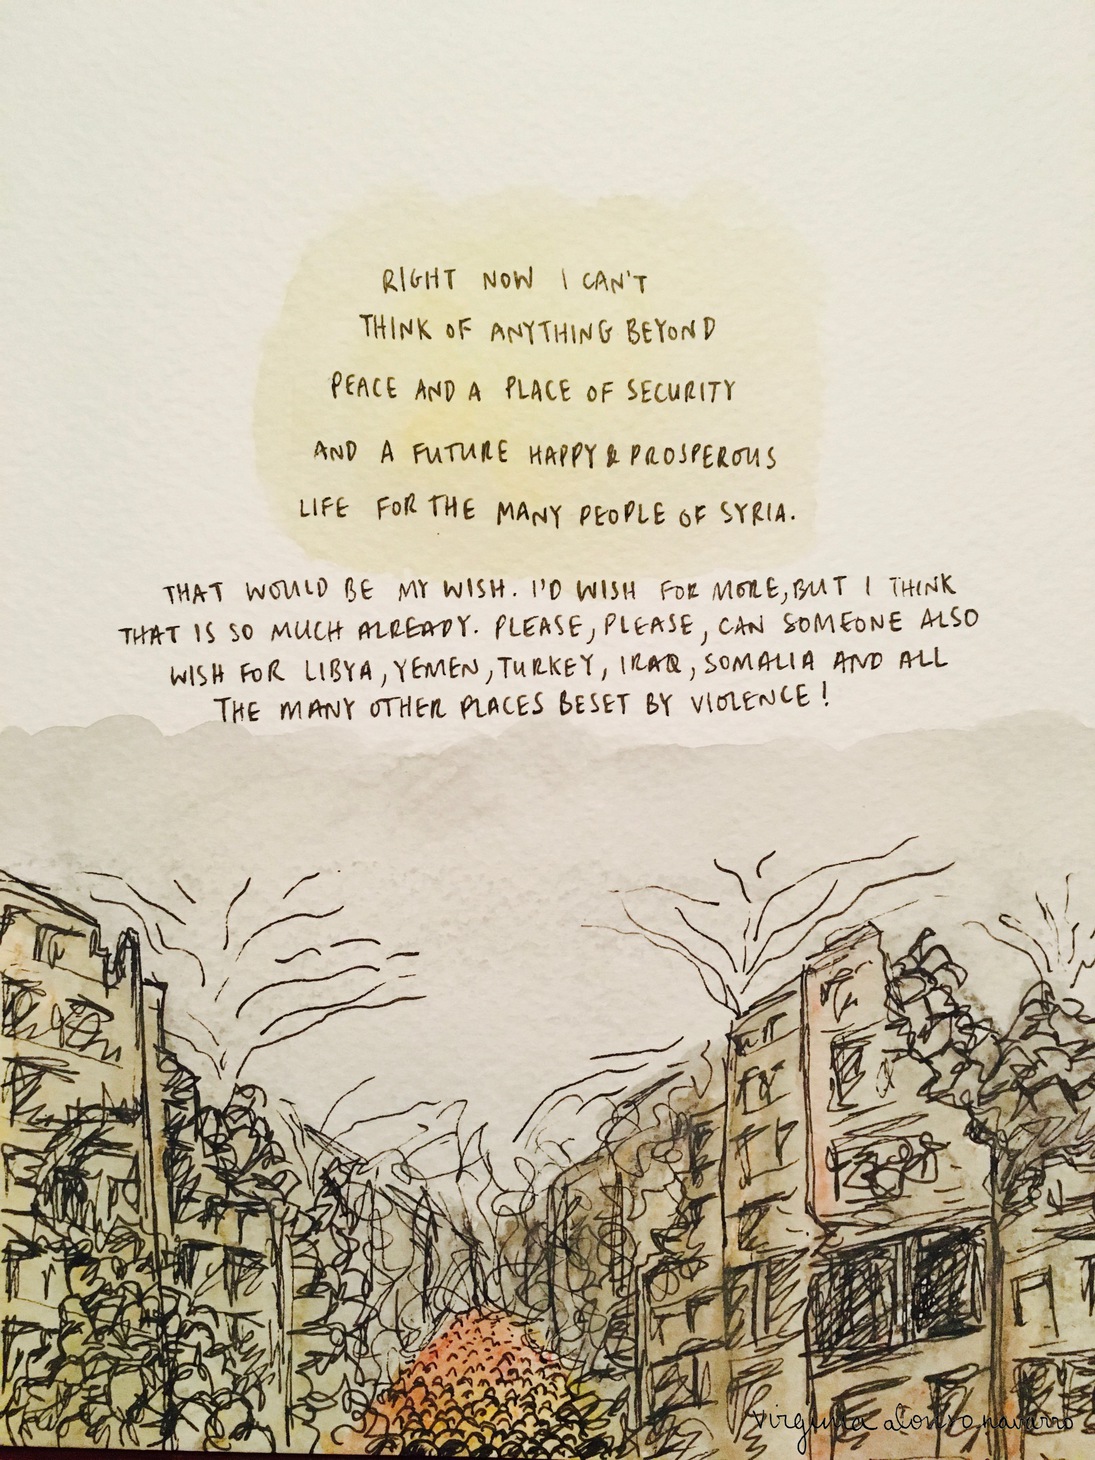 RIGHT NOW I CAN'T
THINK OF ANYTHING BEYOND
PEACE AND A PLACE OF SECURITY
AND A FUTURE HAPPY & PROSPEROUS
LIFE FOR THE MANY PEOPLE OF SYRIA.
THAT WOULD BE MY WISH. I'D WISH FOR MORE, BUT I THINK
THAT IS SO MUCH ALREADY. PLEASE, PLEASE, CAN SOMEONE ALSO
WISH FOR LIBYA, YEMEN, TURKEY, IRAQ, SOMALIA AND ALL
THE MANY OTHER PLACES BESET BY VIOLENCE!
Virginia alonso navarro